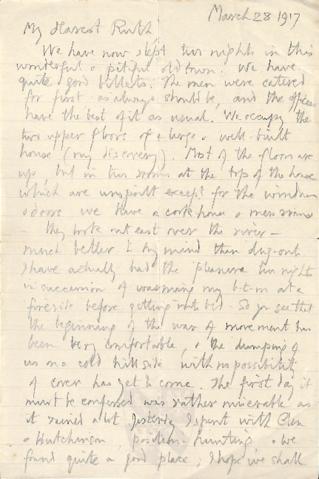 March 28 1917
My Dearest Ruth
We have now slept two nights in this
wonderful & pitiful old town. We have
quite good billets. The men were catered
for first as always should be, and the officers
have the best of it as usual. We occupy the
two upper floors of a large & well built
house (my discovery). Most of the floors are
up, but in two rooms at the top of the house
which are unspoilt except for the windows
& doors we have a & mess room
they look out east over the river –
much better to my mind than dug-outs
I have actually had the pleasure two nights
in succession of warming my b.t.m at a
fireside before getting into bed. So you see that
the beginning of the war of movement has
been very comfortable, & the dumping of
us on a cold hill side with no possibilities
of cover has yet to come. The first day it
must be confessed was rather miserable as
it rained a lot. Yesterday I spent with
& Hutchinson, position hunting & we
found quite a good place; I hope we shall